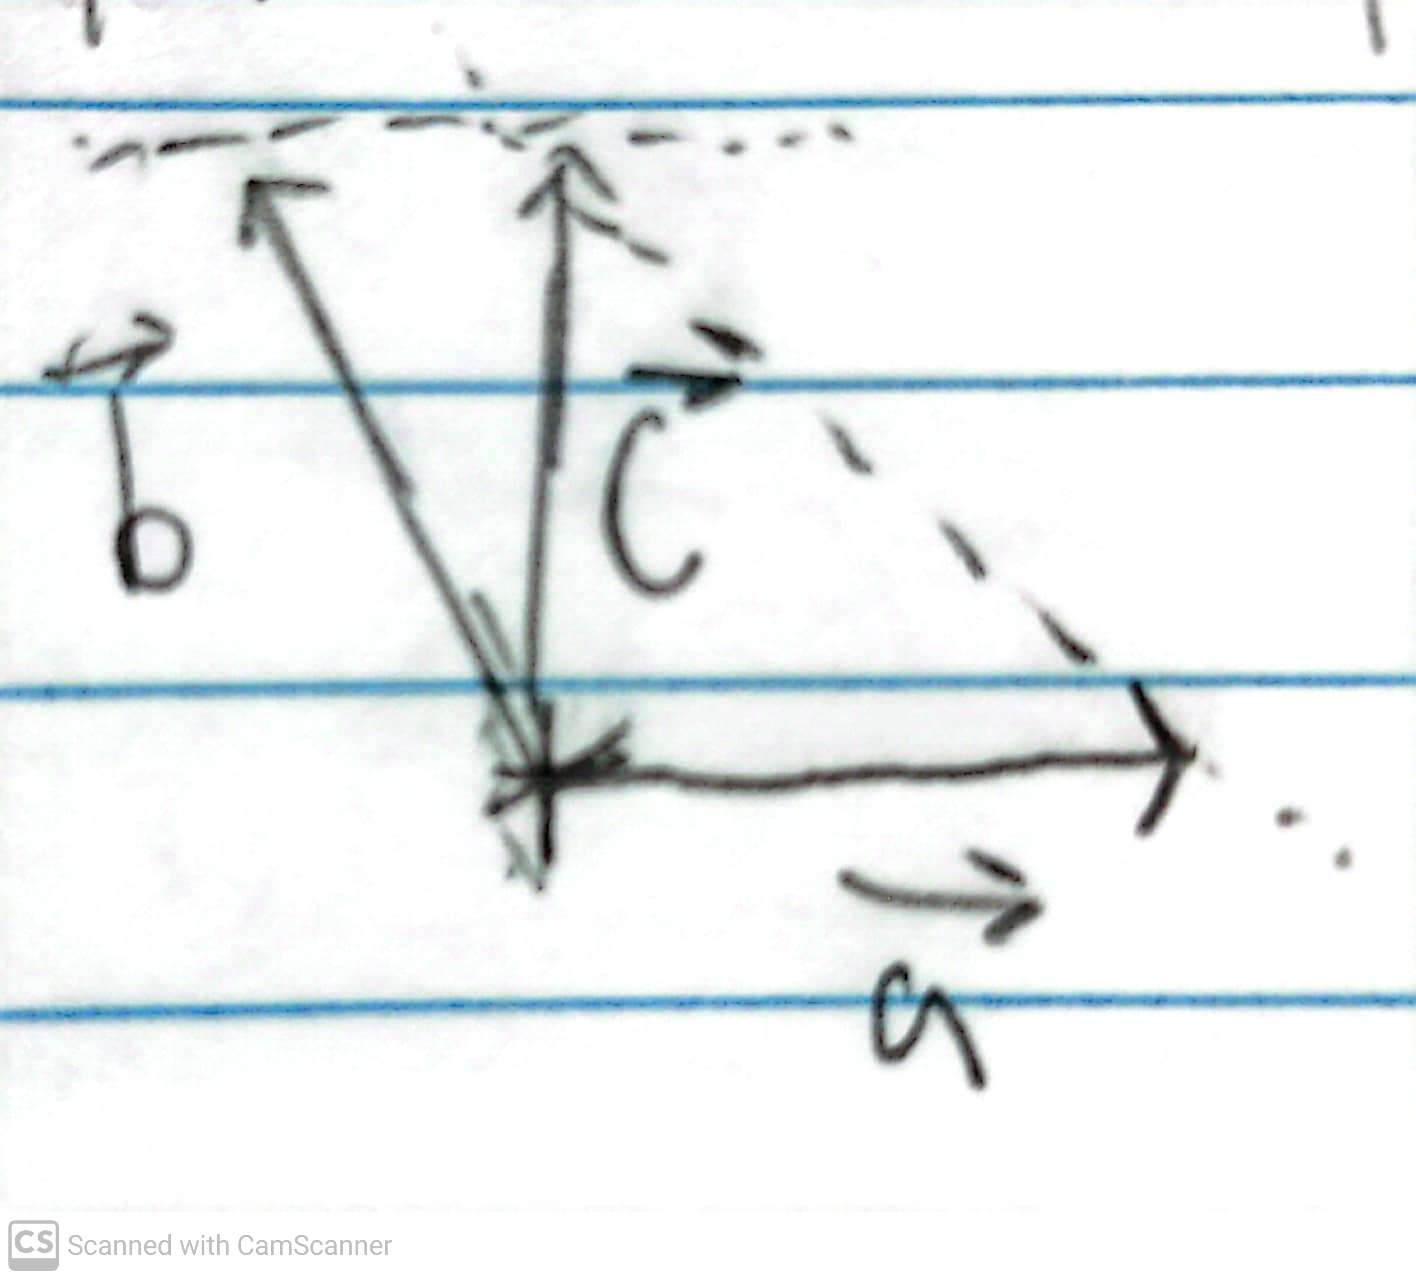 b⃗
c⃗
a⃗
CS Scanned with CamScanner